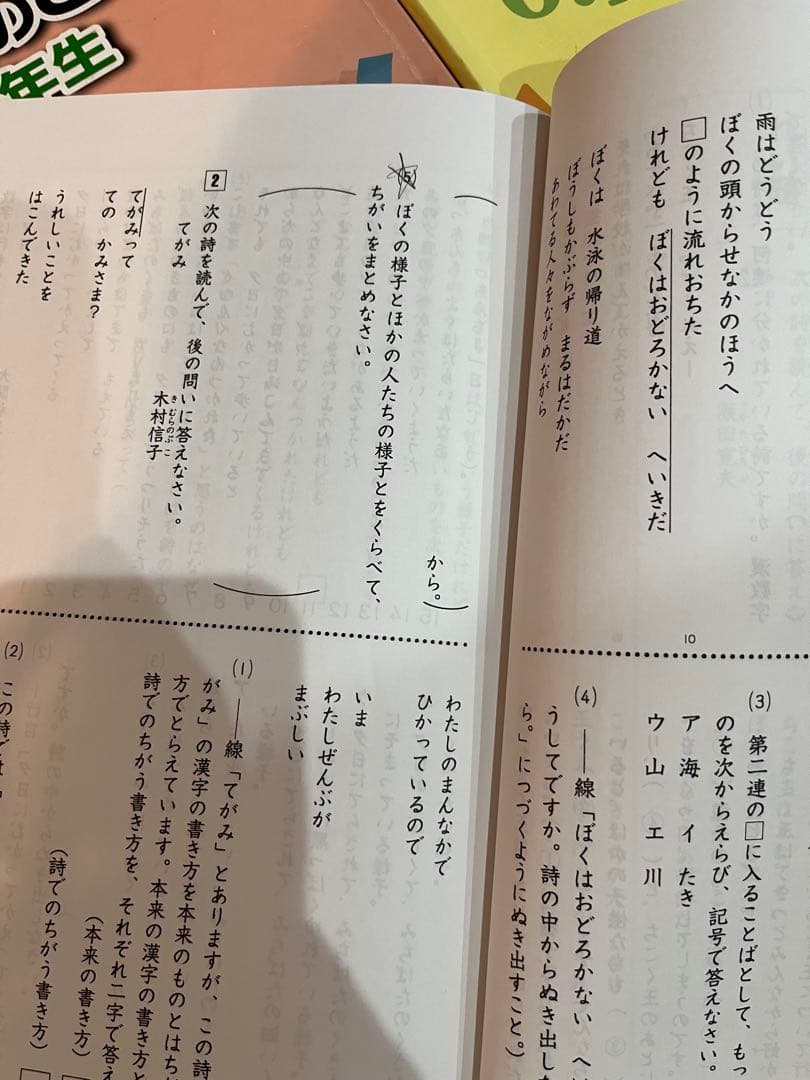 年生
雨はどうどう
ぼくの頭からせなかのほうへ
□のように流れおちた
けれども ぼくはおどろかない へいきだ
ぼくは 水泳の帰り道
ぼうしもかぶらず まるはだかだ
あわてる人々をながめながら
10
(3) 第二連の□に入ることばとして、もっ
のを次からえらび、記号で答えなさい。
ア 海 イ たき
ウ 山 エ 川
(4) ――線「ぼくはおどろかない へ
うしてですか。詩の中からぬき出した
ら。」につづくようにぬき出すこと。)
から。
(5) ぼくの様子とほかの人たちの様子とをくらべて、
ちがいをまとめなさい。
2 次の詩を読んで、後の問いに答えなさい。
てがみ
木村信子
きむらのぶこ
てがみって
ての かみさま?
うれしいことを
はこんできた
わたしのまんなかで
ひかっているので
いま
わたしぜんぶが
まぶしい
(1) ――線「てがみ」とありますが、この詩
がみ」の漢字の書き方を本来のものとはち
方でとらえています。本来の漢字の書き方と
詩でのちがう書き方を、それぞれ二字で答え
(本来の書き方)
(詩でのちがう書き方)
(2) この詩では